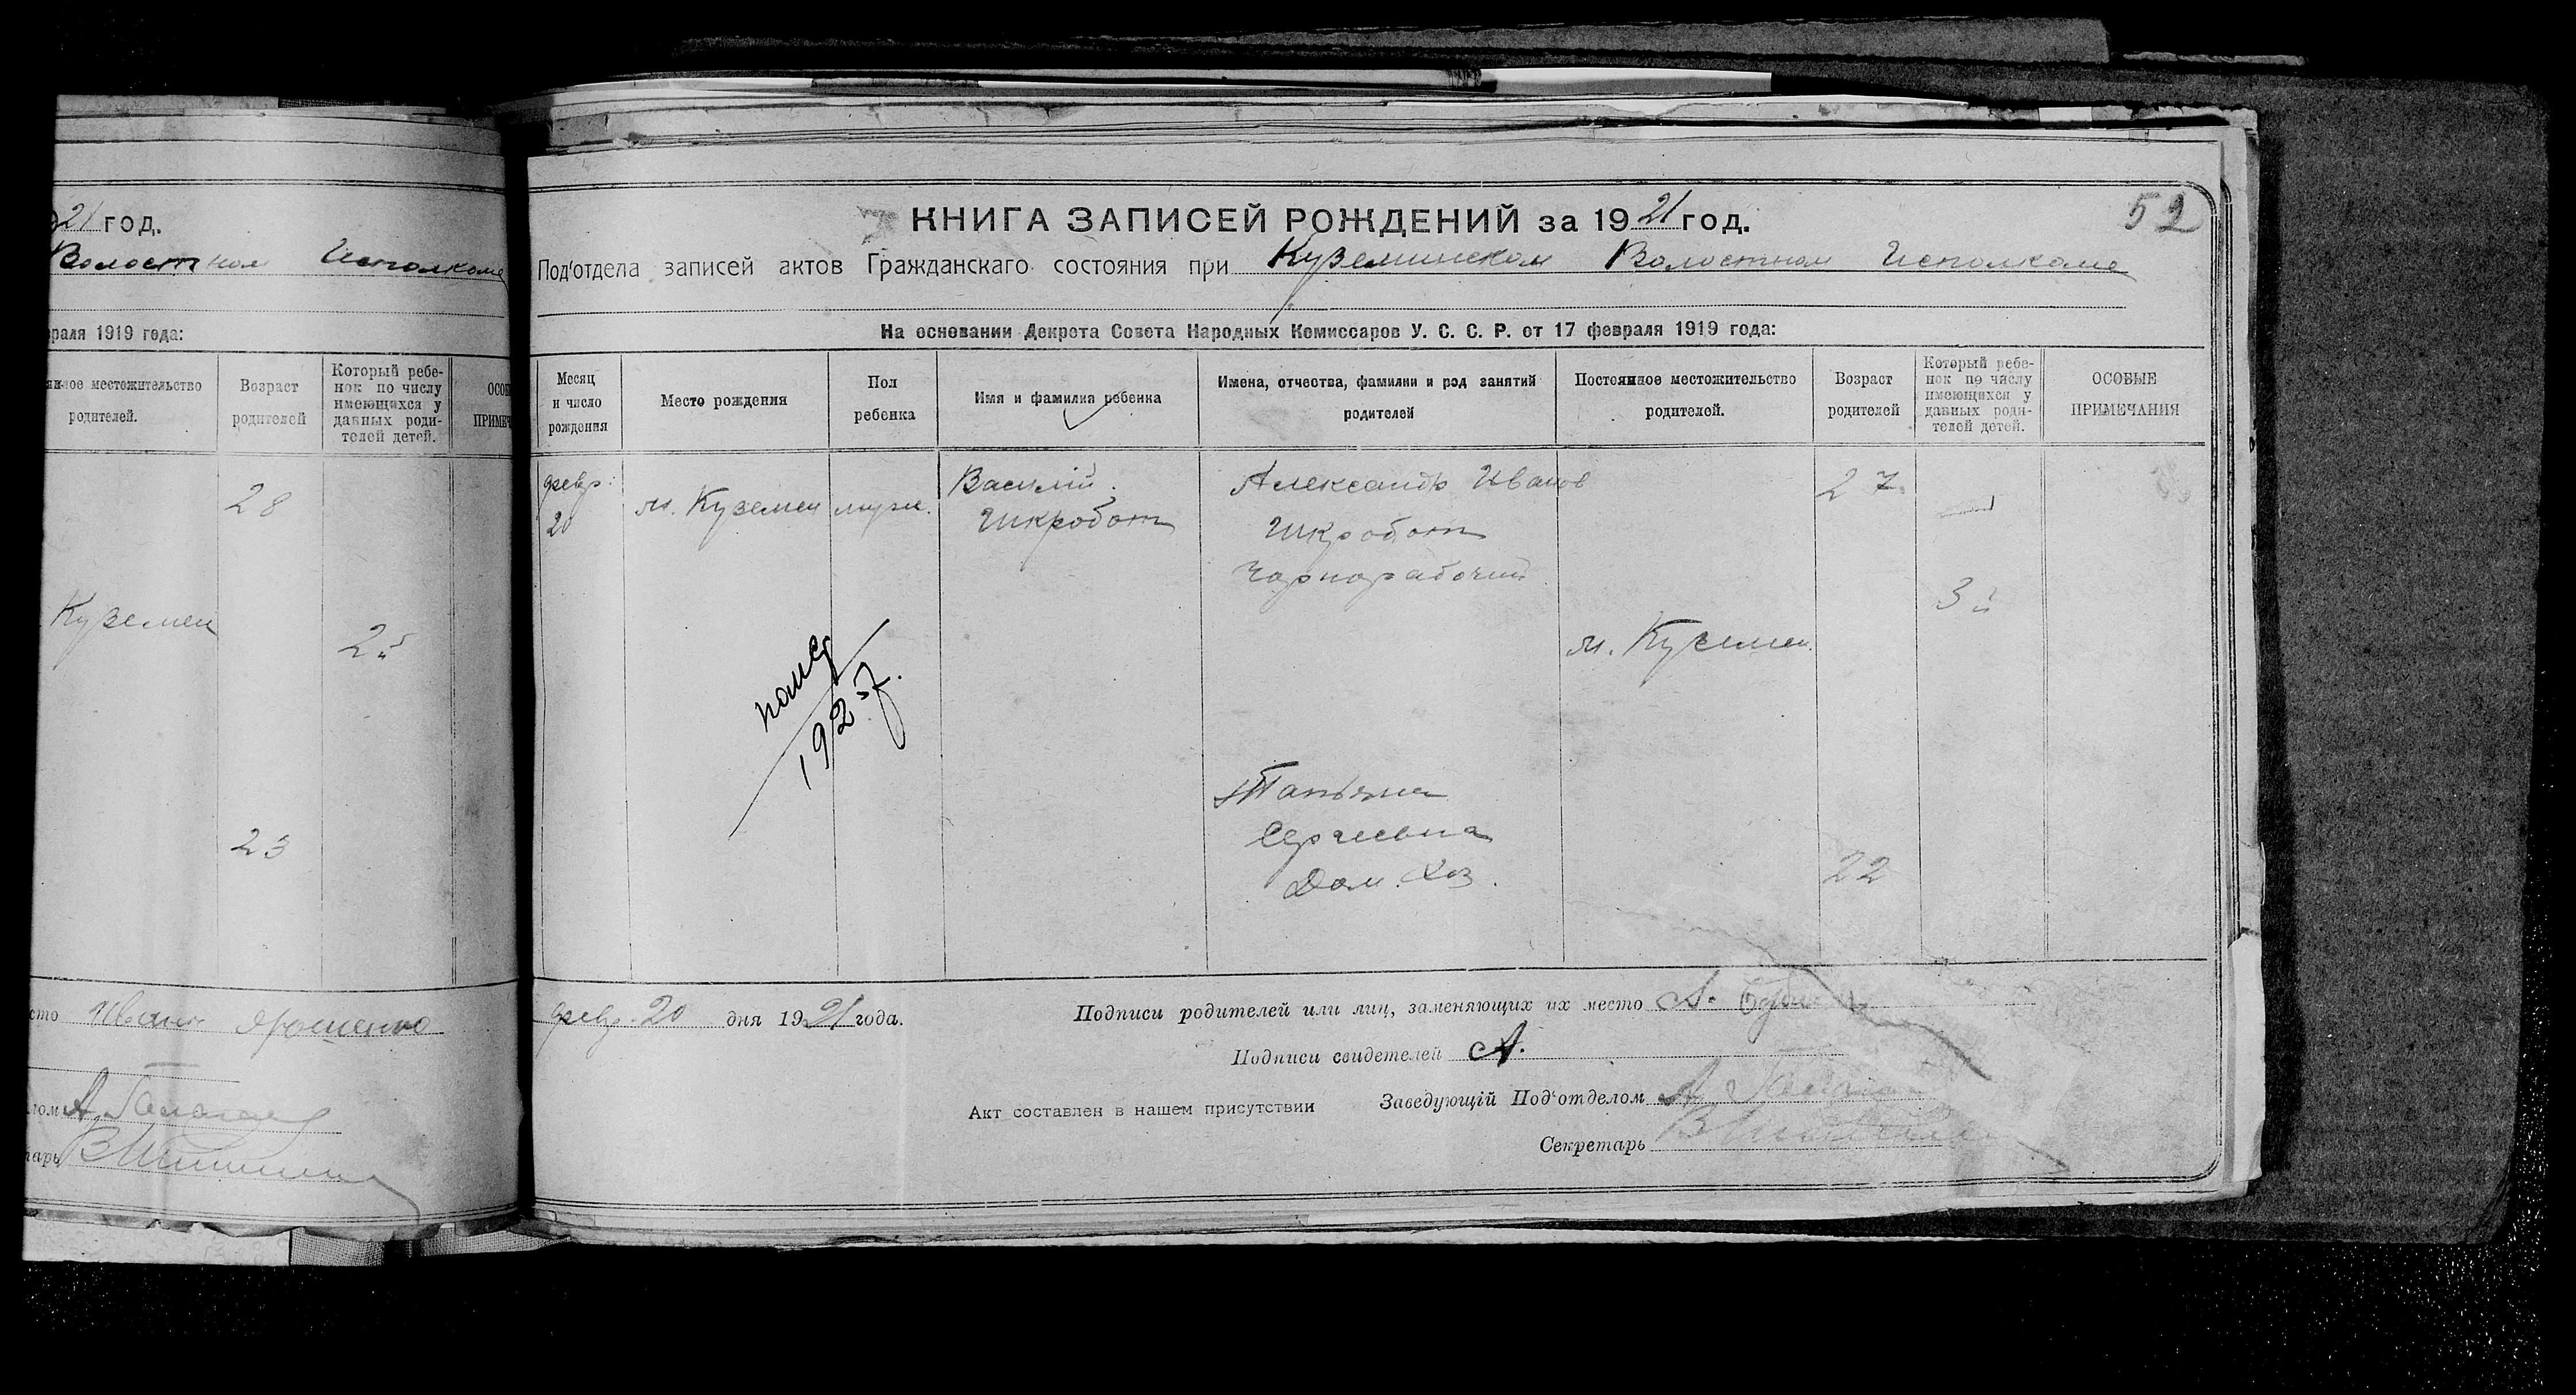 21 ГОД.
Волостном Исполкоме
раля 1919 года:
ное местожительство
родителей.
Возраст
родителей
Который ребе-
нок по числу
имеющихся у
данных роди-
телей детей.
ОСОБ
ПРИМЕЧ
28
Куземен
2й
23
сто Иван Ярошенко
лом А.
тарь
52
КНИГА ЗАПИСЕЙ РОЖДЕНИЙ за 1921 год.
Под'отдела записей актов Гражданскаго состояния при Куземинском Волостном Исполкоме
На основании Декрета Совета Народных Комиссаров У. С. С. Р. от 17 февраля 1919 года:
Месяц
и число
рождения
Место рождения
Пол
ребенка
Имя и фамилия ребенка
Имена, отчества, фамилии и род занятий
родителей
Постоянное местожительство
родителей.
Возраст
родителей
Который ребе-
нок по числу
имеющихся у
данных роди-
телей детей.
ОСОБЫЕ
ПРИМЕЧАНИЯ
февр.
20
м. Куземен
муж.
Василий
Шкробот
Александр Иванов
Шкробот
Чорнорабочий
м. Куземен.
27
3й
1925
Татьяна
Сергиевна
Дом. Хоз.
22
февр. 20 дня 1921 года.
Подписи родителей или лиц, заменяющих их место А.
Подписи свидетелей А.
Акт составлен в нашем присутствии
Заведующій Под'отделом А.
Секретарь